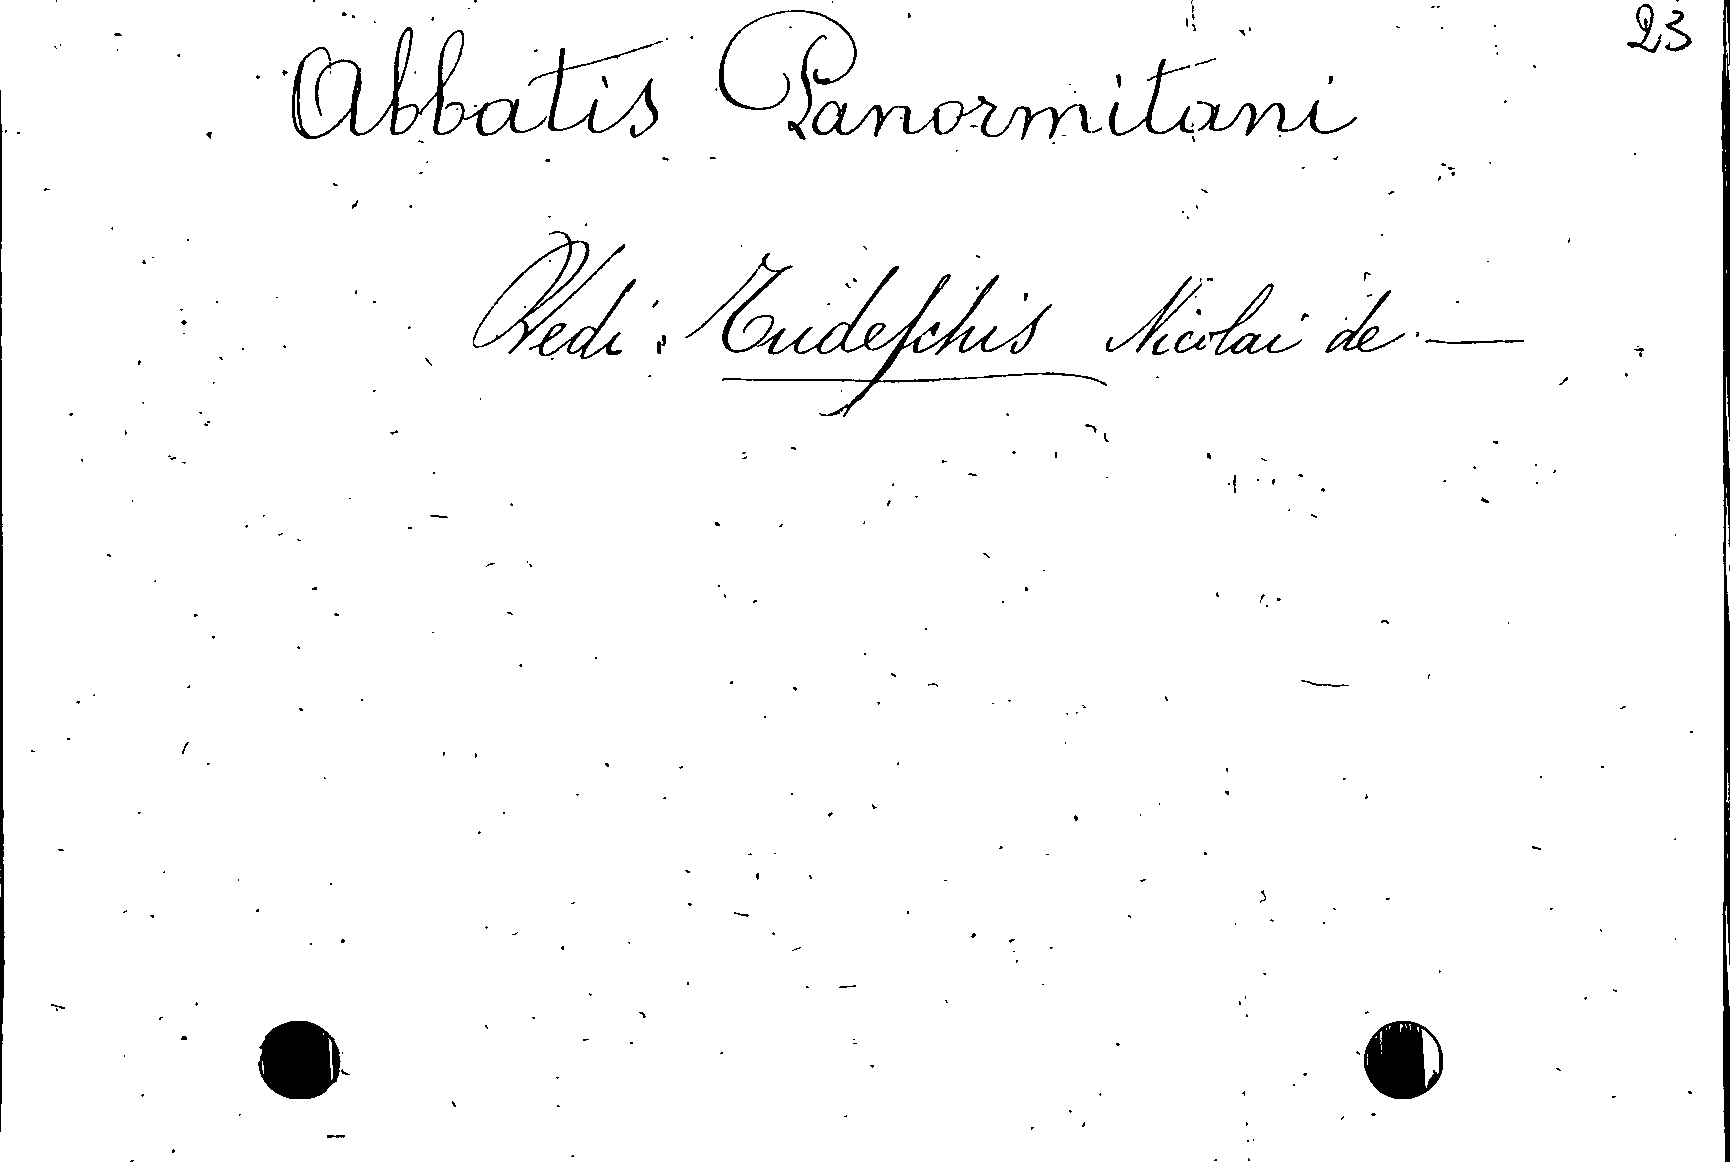 23
Abbatis Panormitani
Vedi: Tudeſchis Nicolai de —